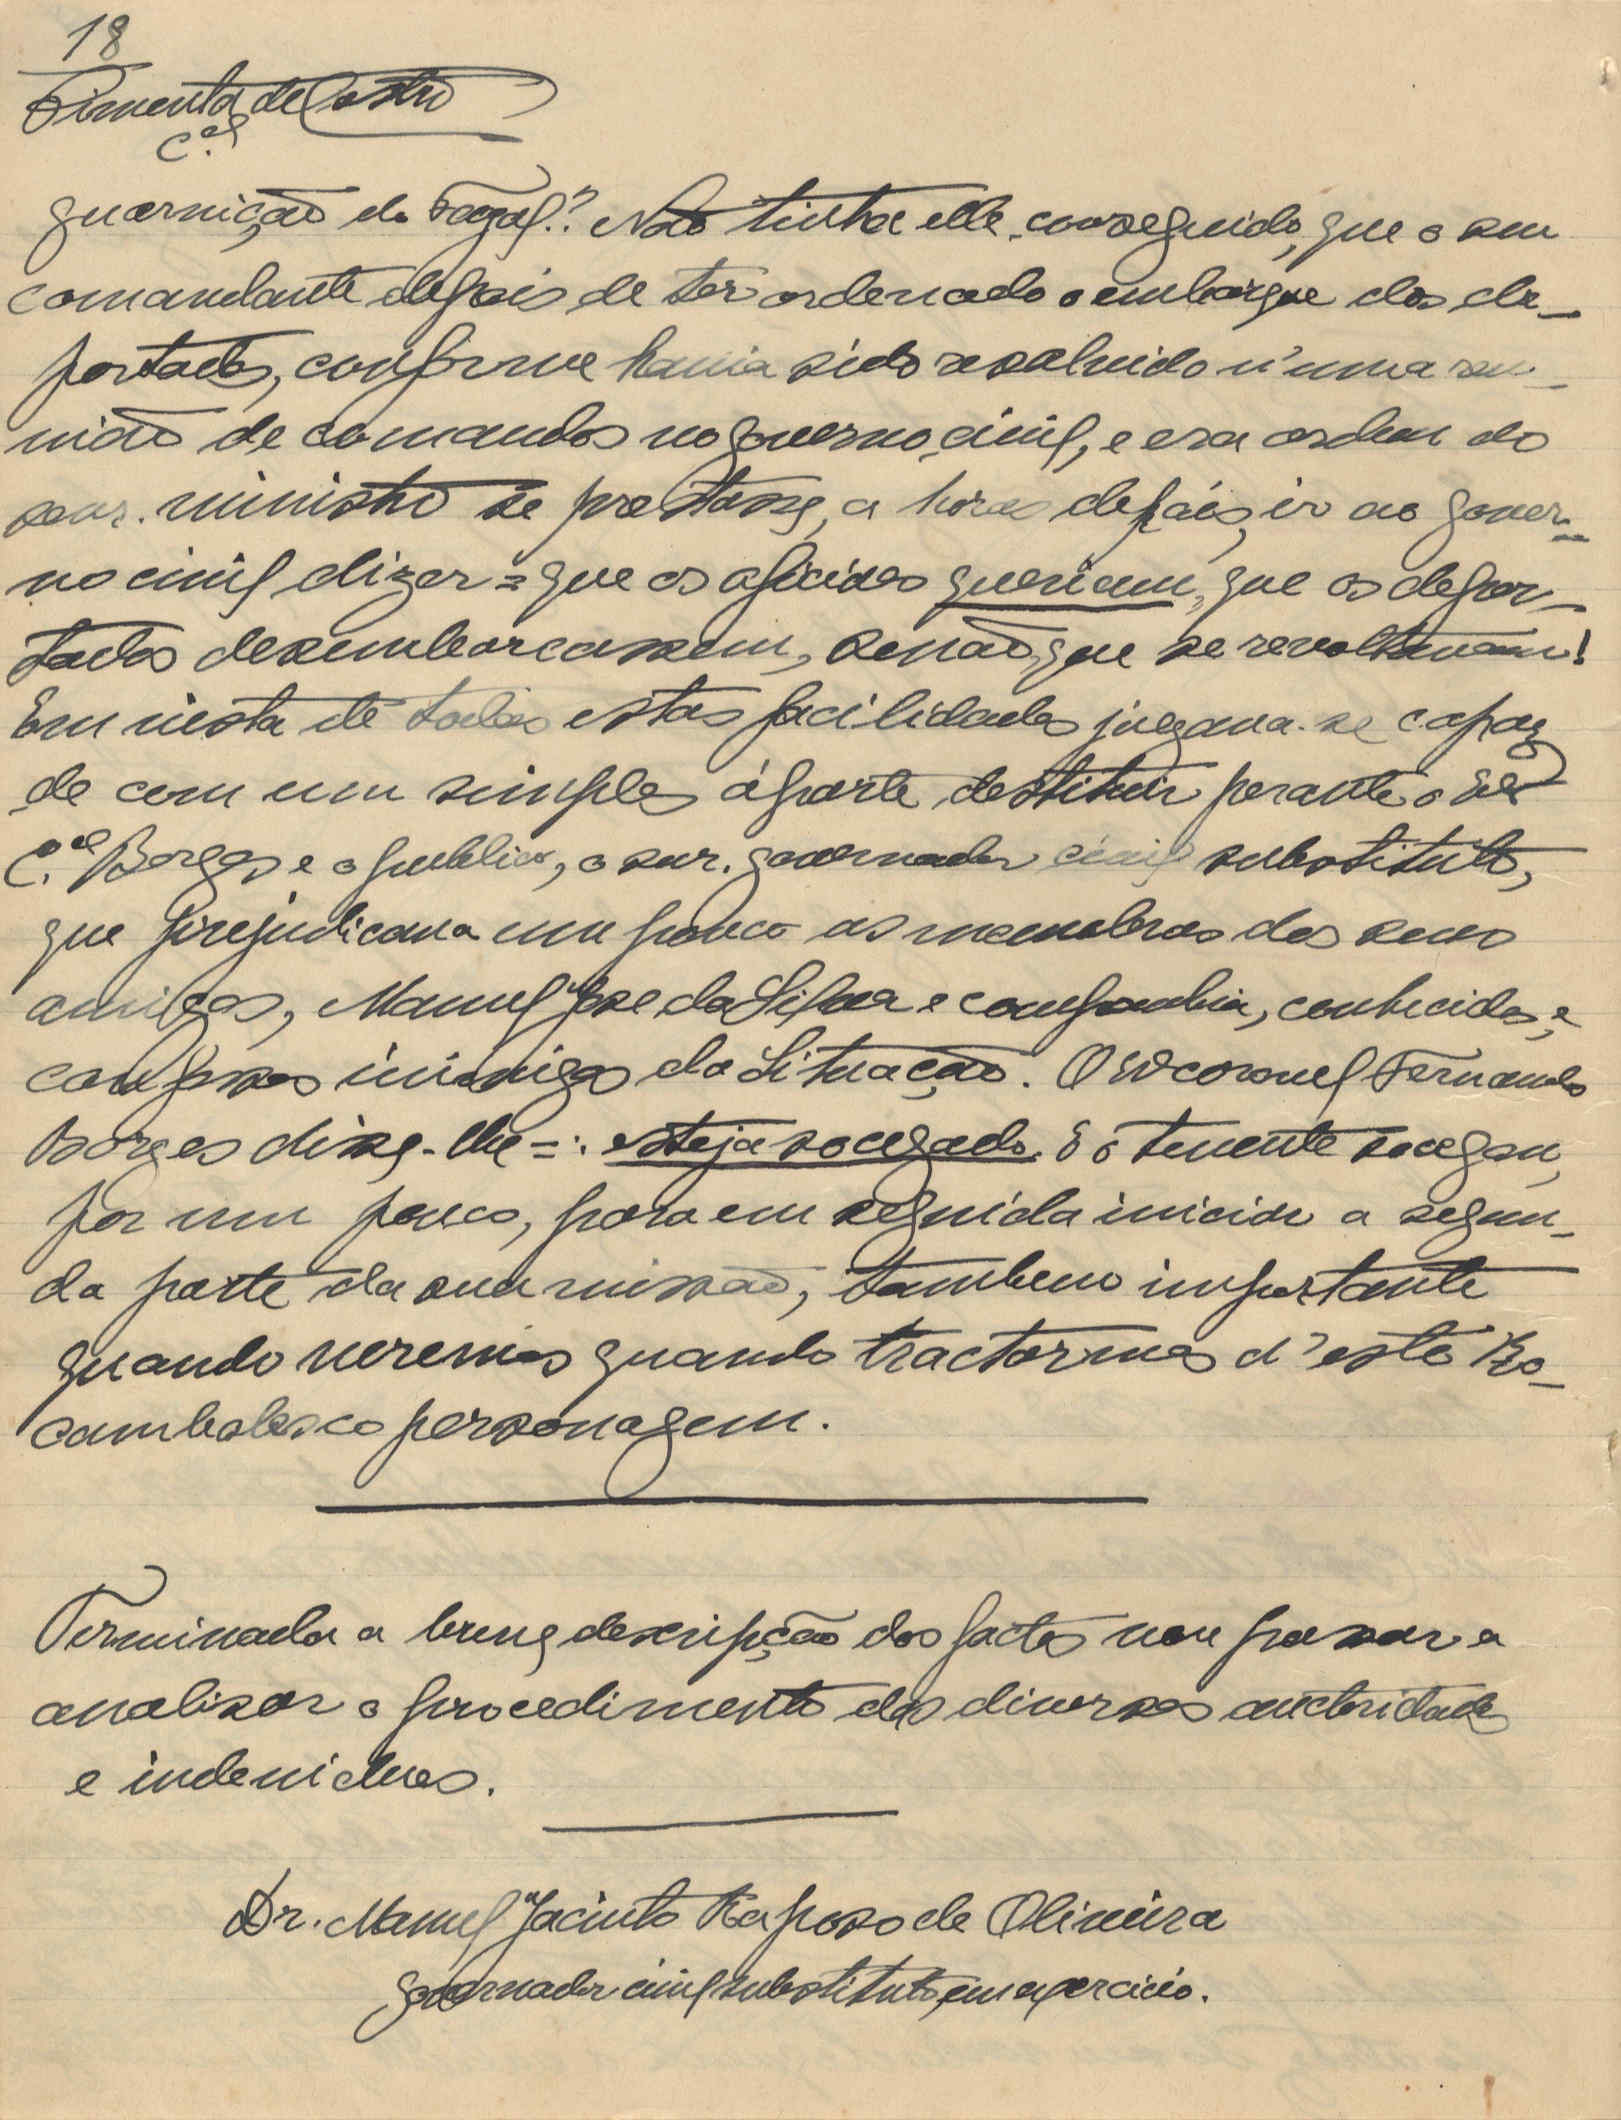 18
Pimenta de Castro
C.el
guarnição do Fayal? Não tinha elle conseguido, que o seu
comandante depois de ter ordenado o embarque dos de-
portados, conforme havia sido resolvido n'uma reu-
nião de comandos no governo civil, e era ordem do
snr. ministro se prestasse, a horas depois, ir ao gover-
no civil dizer = que os oficiaes queriam, que os depor-
tados desembarcassem, senão, que se revoltavam!
Em vista de todas estas facilidades julgava-se capaz
de com um simples áparte destituir perante o
C.el Borges e o publico, o snr. governador civil substituto,
que prejudicava um pouco as manobras dos seus
amigos, Manuel José da Silva e companhia, conhecidos, e
confessos inimigos da Situação. O coronel Fernando
Borges disse-lhe =: esteja socegado. E o tenente socegou,
por um pouco, para em seguida iniciar a segun-
da parte da sua missão, tambem importante
quando veremos quando tractarmos d'este Ro-
cambolesco personagem.
Terminada a breve descripção dos factos vou passar a
analisar o procedimento das diversas auctoridades
e individuos.
Dr. Manuel Jacinto Raposo de Oliveira
governador civil substituto, em exercicio.